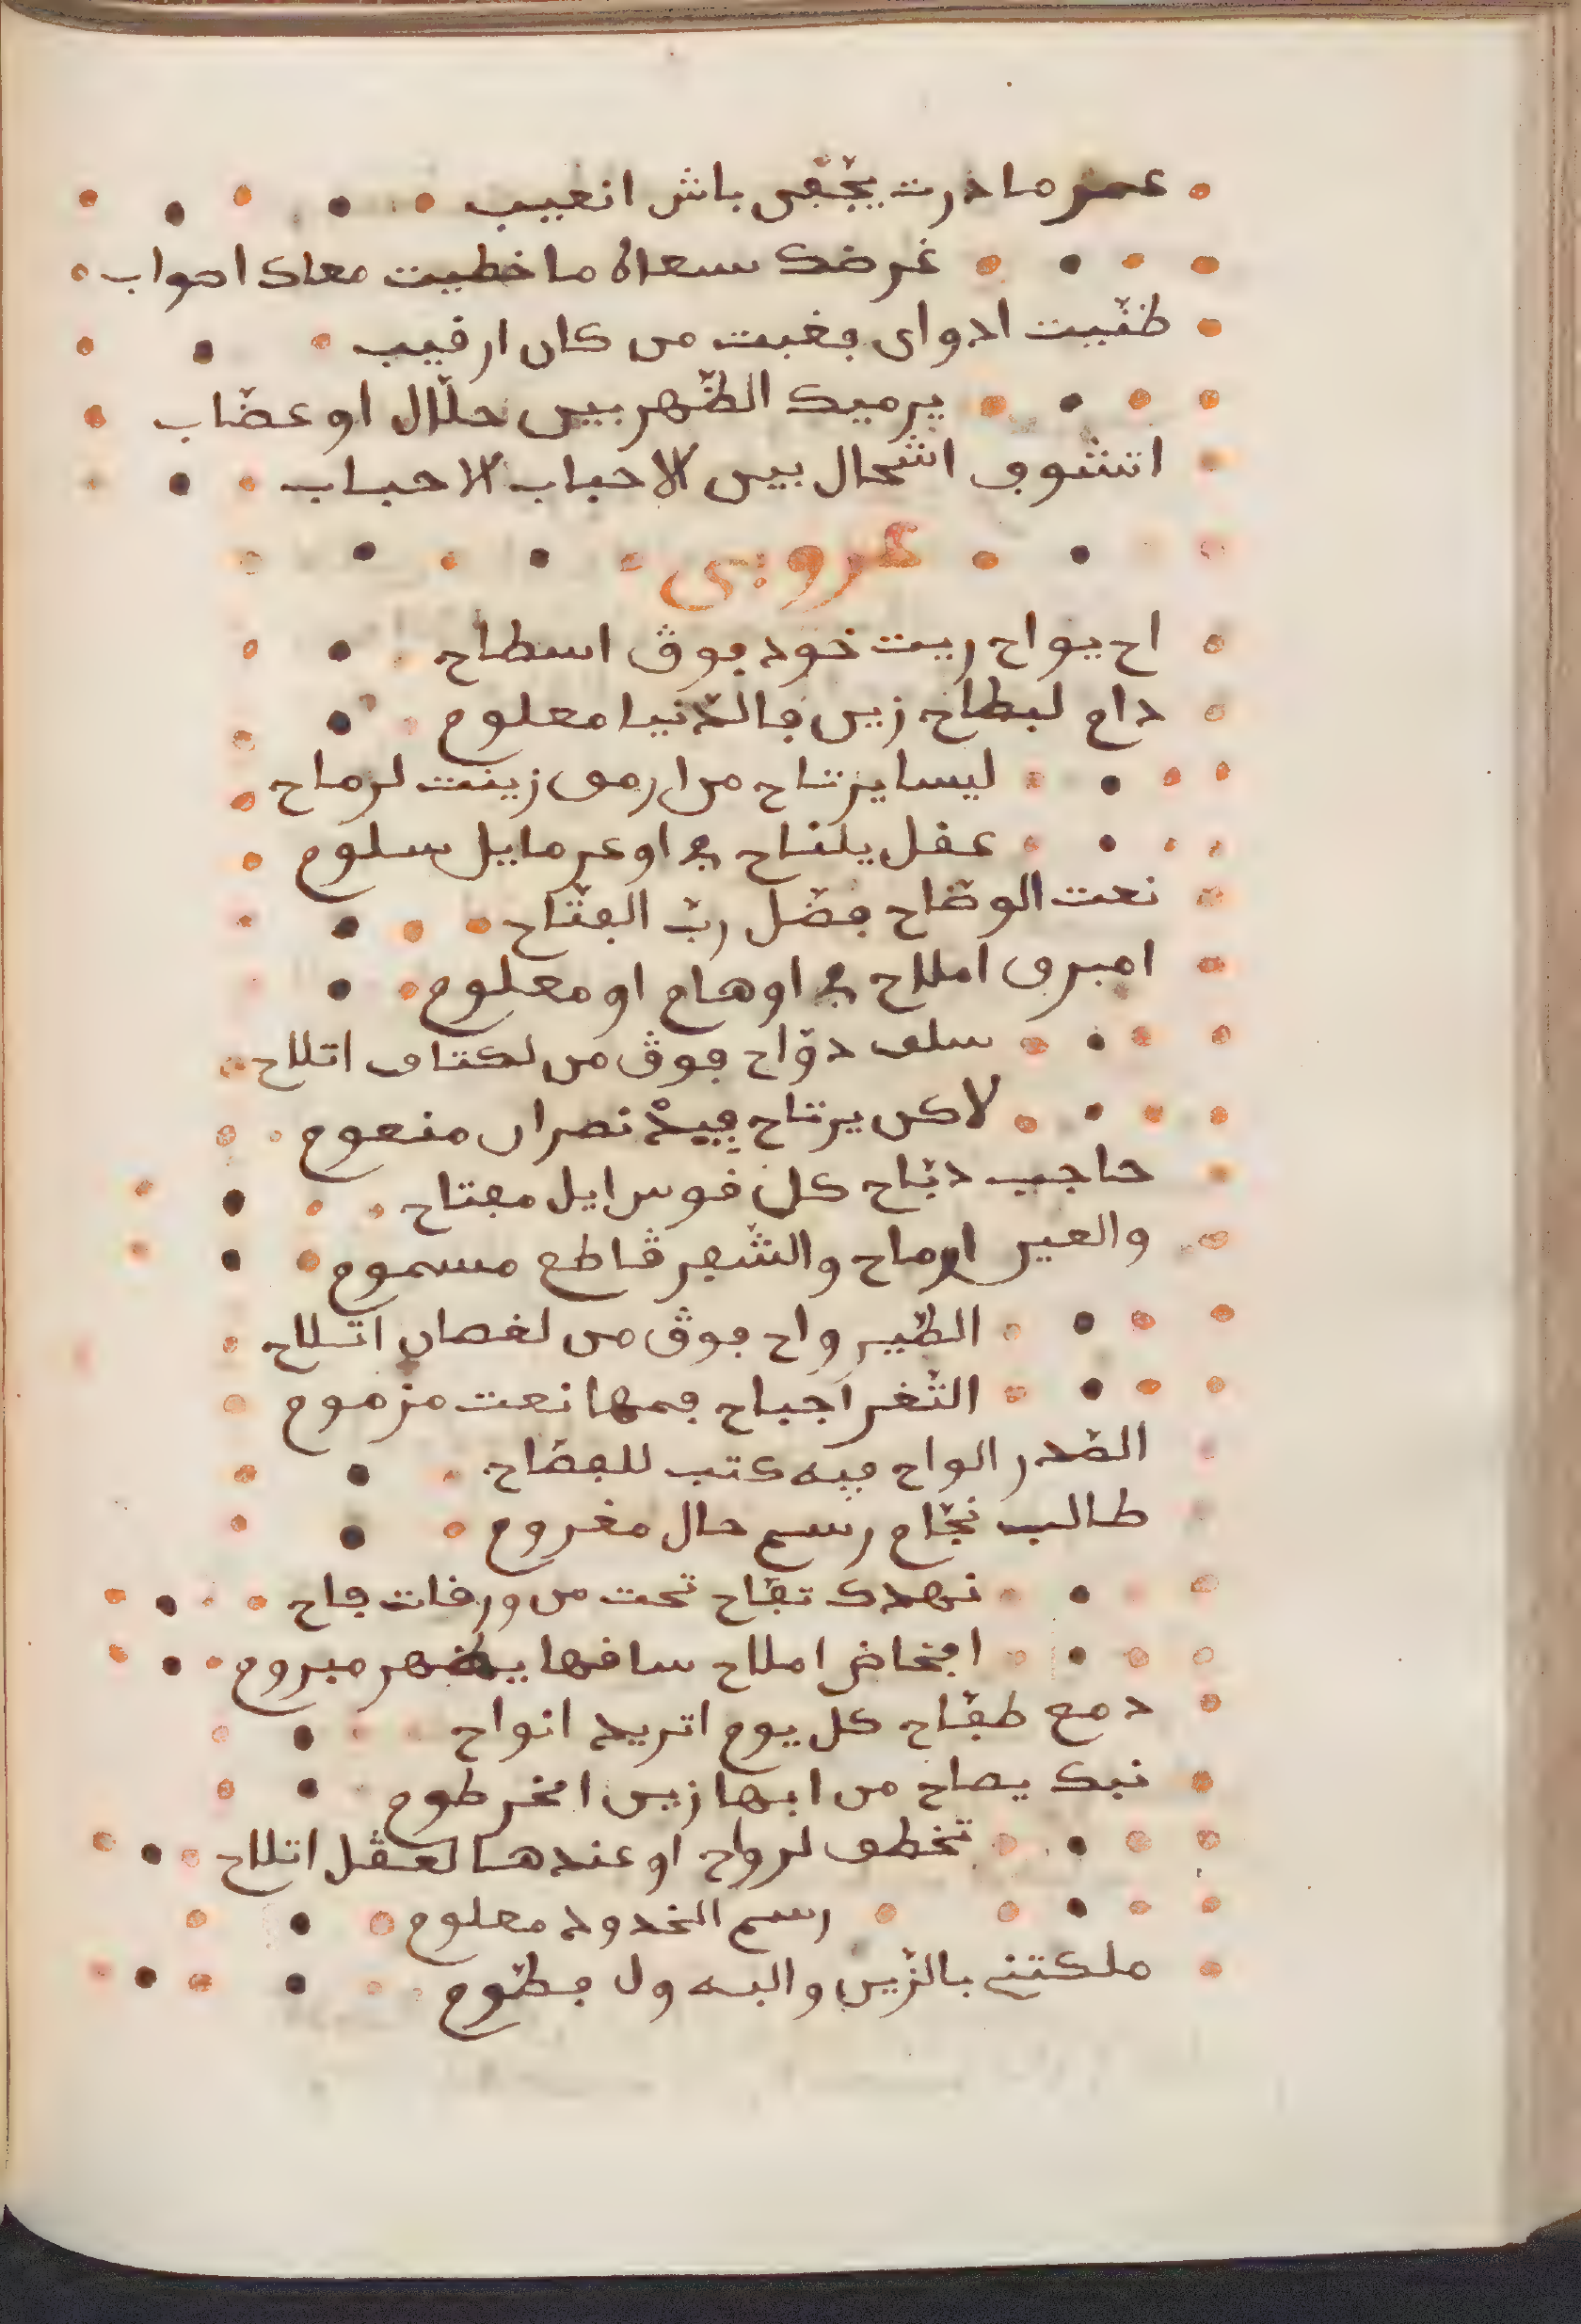 عمر ما درت يخفى باش انعيب
غرضك سعاه ما خطيت معاك اصواب
ظنيت ادواى فغبت من كان ارقيب
يرميك الظهر بين حلال او عضاب
اتشوف اشحال بين الاحباب الاحباب
عروبى
اح يواح ريت خود فوق اسطاح
داع لبطاح زين فالدنيا معلوم
ليسا يرتاح من ارمى زينت لرماح
عقل يلتاح في اوعر ما يل سلوم
نعت الوضاح فضل رب الفتاح
امبرى املاح في اوهام او معلوم
سلف دواح فوق من لكتاف اتلاح
لاكن يرتاح فيد نصران منعوم
حاجب دباح كل قوس ايل مفتاح
والعين ارماح والشفر قاطع مسموم
الطير واح فوق من لغصان اتلاح
الثغر اجباح فمها نعت مزموم
الصدر الواح فيه كتب للفصاح
طالب نجاح رسم حال مغروم
نهدك تفاح تحت من ورقات فاح
افخاض املاح ساقها يظهر مبروم
دمع طفاح كل يوم اتريد انواح
نبك يصاح من ابها زين الخرطوم
تخطف لرواح او عندها لعقل اتلاح
رسم الخدود معلوم
ملكتني بالزين والبه ول فطوم